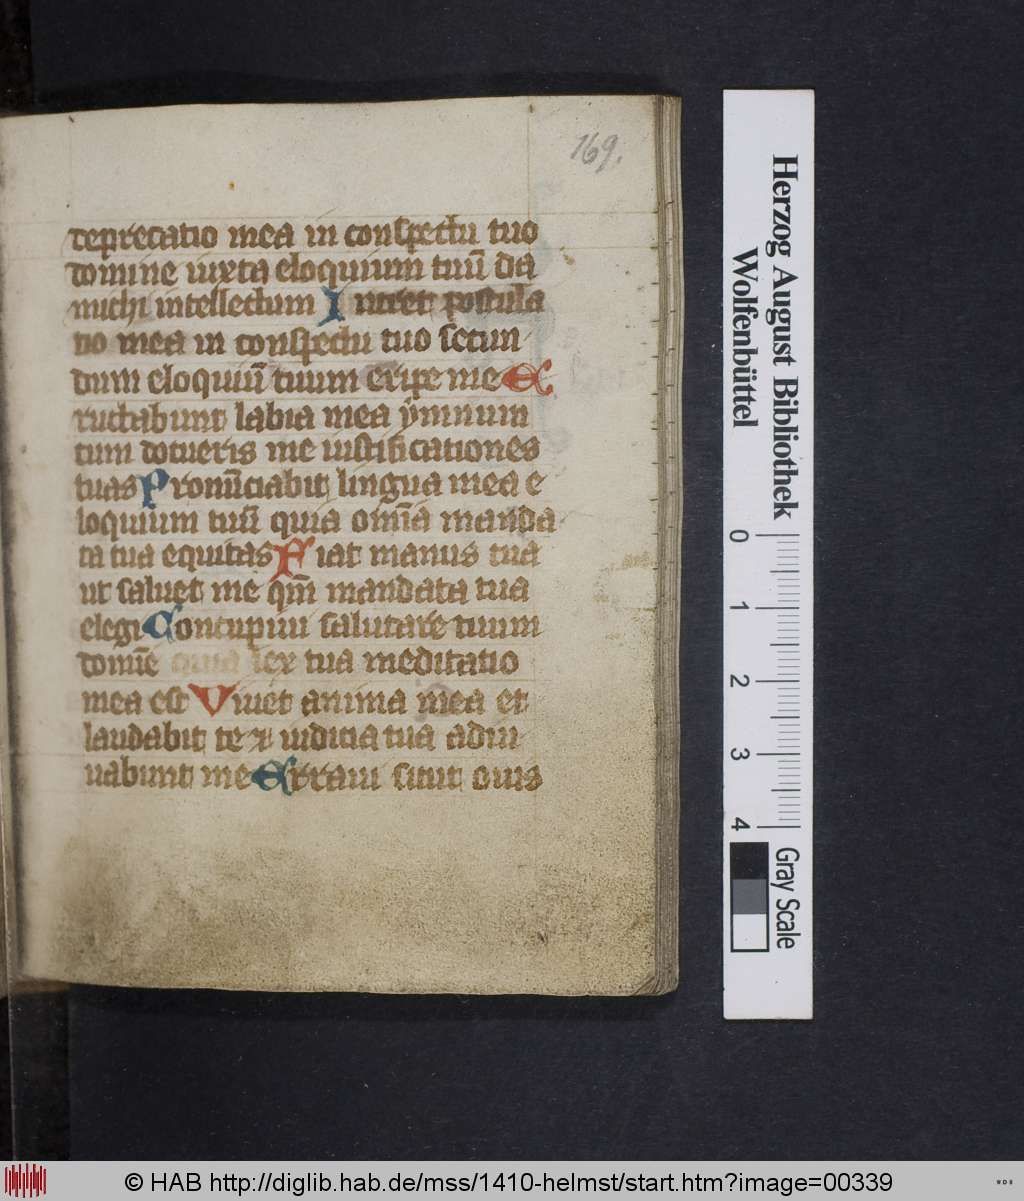 169.
deprecatio mea in conspectu tuo
domine iuxta eloquium tuū da
michi intellectum Intret postula
tio mea in conspectu tuo secun
dum eloquiū tuum eripe me E
ructabunt labia mea ymnum
cum docueris me iustificationes
tuas Pronūciabit lingua mea e
loquium tuū quia omīa manda
ta tua equitas Fiat manus tua
ut saluet me qm̄ mandata tua
elegi Concupiui salutare tuum
domīe lex tua meditatio
mea est Viuet anima mea et
laudabit te et iudicia tua adiu
uabunt me Erraui sicut ouis
Herzog August Bibliothek
Wolfenbüttel
0 1 2 3 4
Gray Scale
© HAB http://diglib.hab.de/mss/1410-helmst/start.htm?image=00339